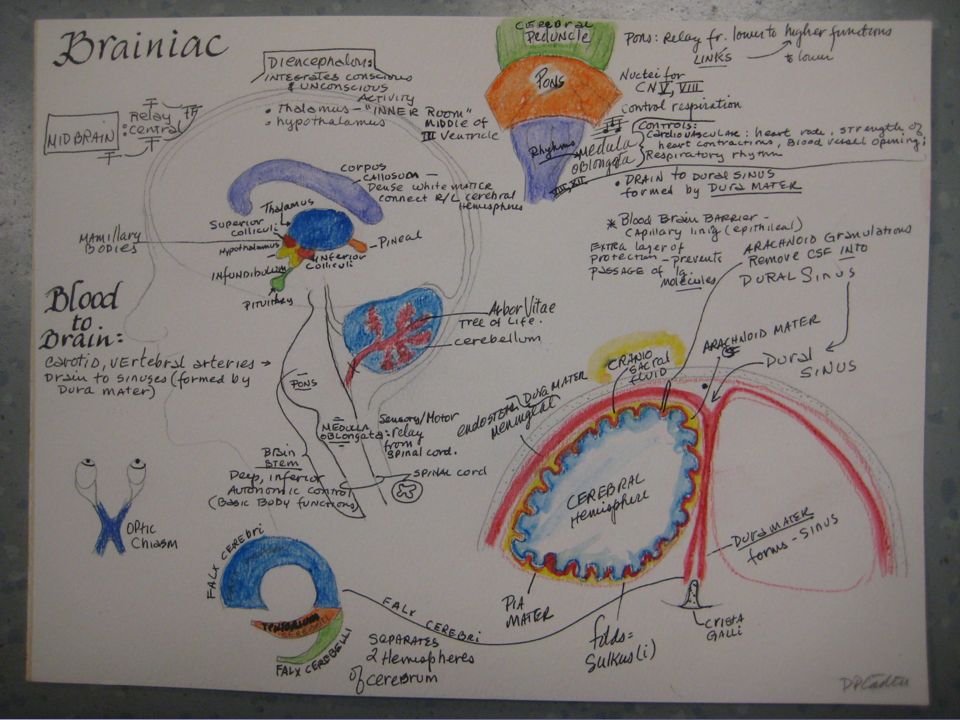 Brainiac
Diencephalons:
INTEGRATES CONSCIOUS
& UNCONSCIOUS
ACTIVITY
• Thalamus - "INNER ROOM"
• hypothalamus
MIDDLE OF
III Ventricle
MIDBRAIN
: Relay
central
CEREBRAL
PEDUNCLE
PONS
Rhythms
Medulla
Oblongata
VIII, XII
Pons: Relay fr. lower to higher functions
LINKS
to lower
Nuclei for
CN V, VIII
control respiration
CONTROLS:
Cardiovascular: heart rate, strength of
heart contractions, Blood vessel opening;
Respiratory rhythm
• DRAIN to Dural SINUS
formed by Dura MATER
* Blood Brain Barrier -
Capillary lining (epithileal)
EXTRA layer of
Protection - prevents
passage of lg
molecules
ARACHNOID GRANULATIONS
Remove CSF INTO
DURAL SINUS
corpus
callosum -
Dense white matter
connect R/L cerebral
Hemispheres
Thalamus
Superior
Colliculi
MAMILLARY
BODIES
Hypothalamus
Pineal
INFERIOR
Colliculi
INFUNDIBULUM
PITUITARY
Blood
to
Brain:
carotid, vertebral arteries →
Drain to sinuses (formed by
Dura mater)
Arbor Vitae
Tree of Life.
cerebellum
PONS
MEDULLA
OBLONGATA
Sensory/Motor
:relay
from
Spinal cord.
SPINAL CORD
BRAIN
STEM
Deep, inferior
Autonomic control
(Basic Body functions)
OPTIC
Chiasm
FALX CEREBRI
TENTORIUM
FALX CEREBELLI
FALX CEREBRI
SEPARATES
2 Hemispheres
of cerebrum
CRANIO
SACRAL
FLUID
ARACHNOID MATER
Dural
SINUS
DURA MATER
endosteal
meningeal
CEREBRAL
Hemisphere
DURA MATER
forms - SINUS
PIA
MATER
folds=
Sulkus(i)
CRISTA
GALLI